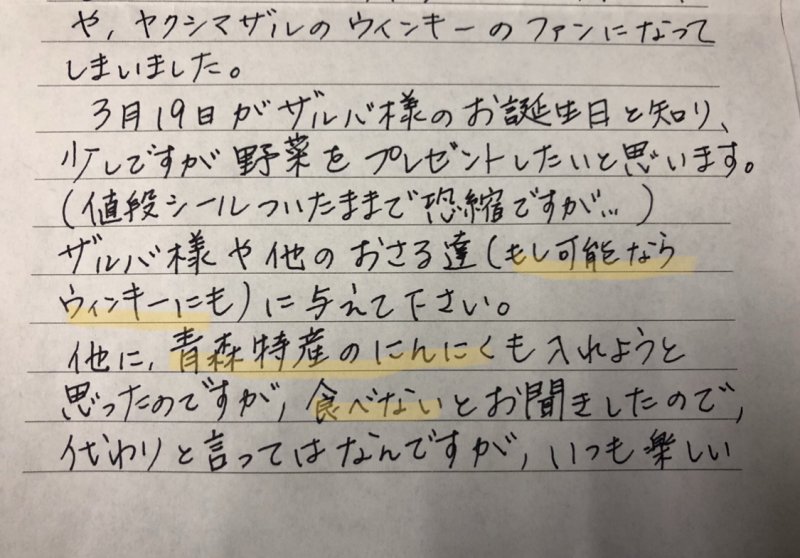 や, ヤクシマザルのウィンキーのファンになって
しまいました。
3月19日がザルバ様のお誕生日と知り、
少しですが野菜をプレゼントしたいと思います。
(値段シールついたままで恐縮ですが…)
ザルバ様や他のおさる達(もし可能なら
ウィンキーにも)に与えて下さい。
他に, 青森特産のにんにくも入れようと
思ったのですが, 食べないとお聞きしたので,
代わりと言ってはなんですが, いつも楽しい